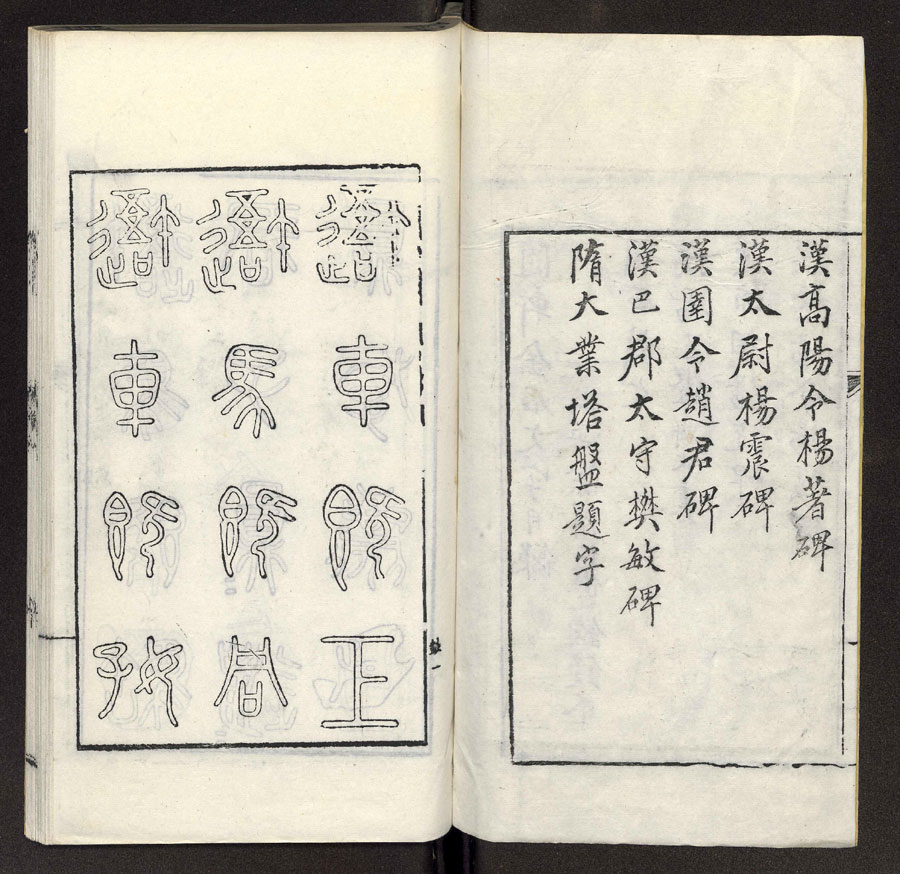 漢高陽令楊著碑
漢太尉楊震碑
漢圉令趙君碑
漢巴郡太守樊敏碑
隋大業塔盤題字
車既工
馬既同
車既好